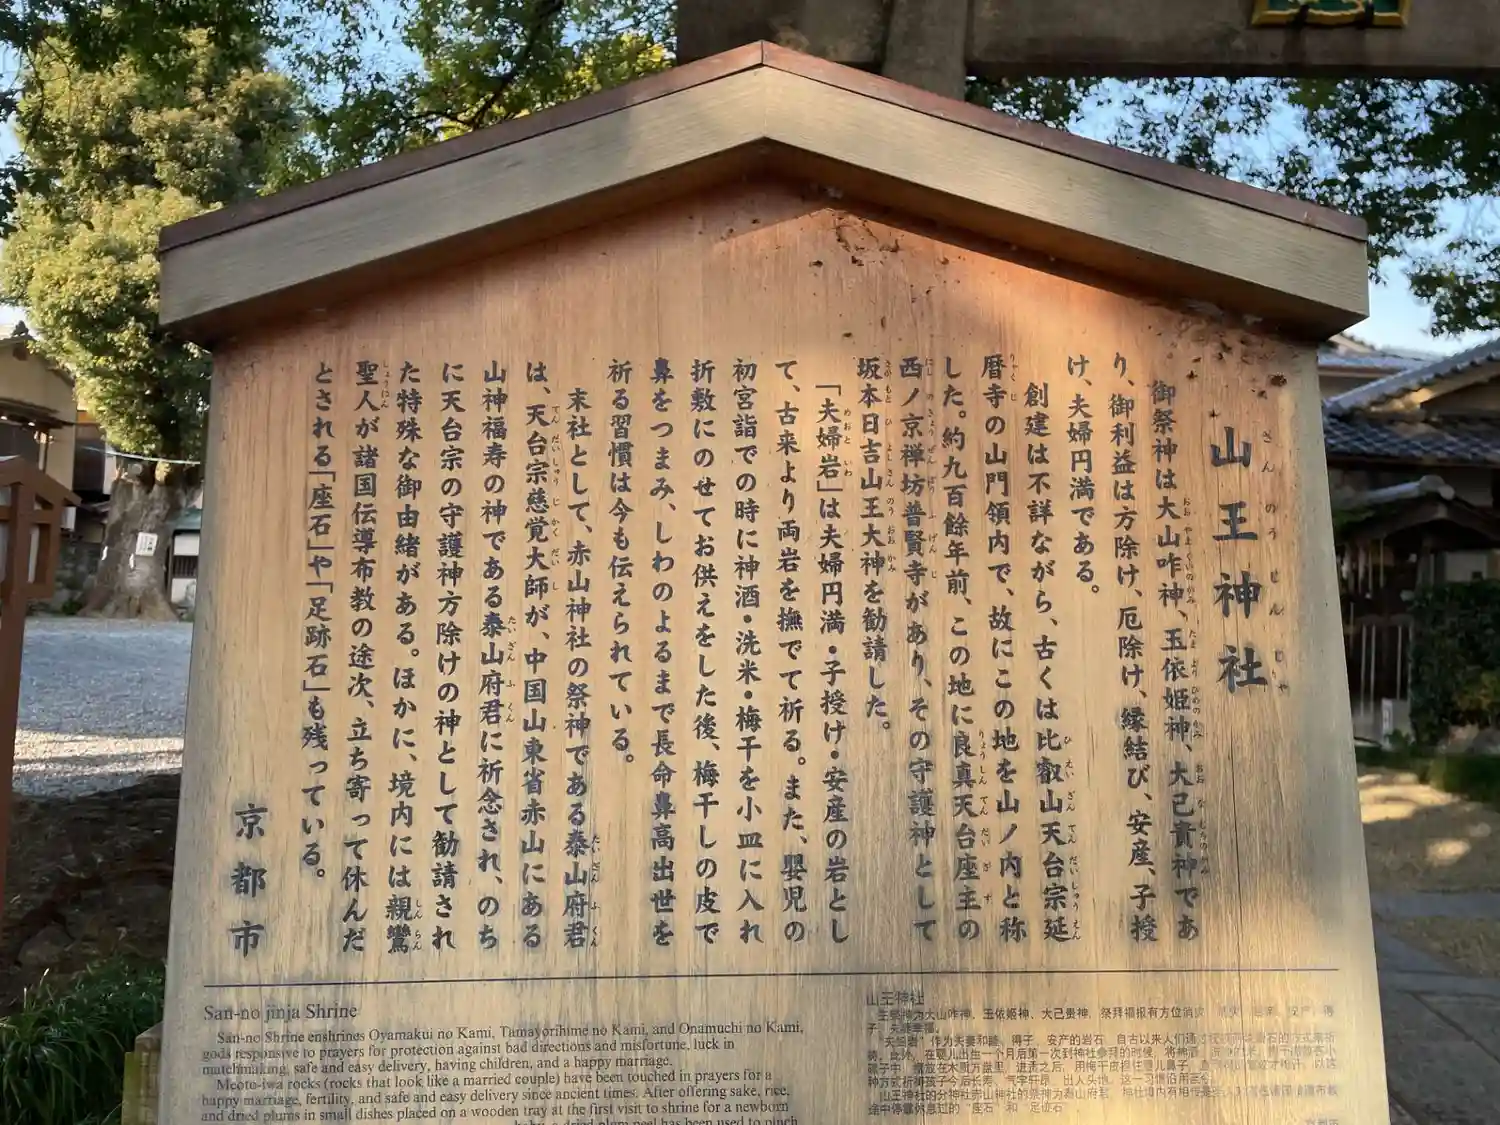 山王神社
さんのうじんじゃ
御祭神は大山咋神、玉依姫神、大己貴神であ
り、御利益は方除け、厄除け、縁結び、安産、子授
け、夫婦円満である。
創建は不詳ながら、古くは比叡山天台宗延
暦寺の山門領内で、故にこの地を山ノ内と称
した。約九百餘年前、この地に良真天台座主の
西ノ京禅坊普賢寺があり、その守護神として
坂本日吉山王大神を勧請した。
「夫婦岩」は夫婦円満・子授け・安産の岩とし
て、古来より両岩を撫でて祈る。また、嬰児の
初宮詣での時に神酒・洗米・梅干を小皿に入れ
折敷にのせてお供えをした後、梅干しの皮で
鼻をつまみ、しわのよるまで長命鼻高出世を
祈る習慣は今も伝えられている。
末社として、赤山神社の祭神である泰山府君
は、天台宗慈覚大師が、中国山東省赤山にある
山神福寿の神である泰山府君に祈念され、のち
に天台宗の守護神方除けの神として勧請され
た特殊な御由緒がある。ほかに、境内には親鸞
聖人が諸国伝導布教の途次、立ち寄って休んだ
とされる「座石」や「足跡石」も残っている。
京都市
San-no jinja Shrine
San-no Shrine enshrines Oyamakui no Kami, Tamayorihime no Kami, and Onamuchi no Kami,
gods responsive to prayers for protection against bad directions and misfortune, luck in
matchmaking, safe and easy delivery, having children, and a happy marriage.
Meoto-iwa rocks (rocks that look like a married couple) have been touched in prayers for a
happy marriage, fertility, and safe and easy delivery since ancient times. After offering sake, rice,
and dried plums in small dishes placed on a wooden tray at the first visit to shrine for a newborn
baby, a dried plum peel has been used to pinch
山王神社
主祭神为大山咋神、玉依姬神、大己贵神。祭拜福报有方位消灾
子、夫妻幸福。